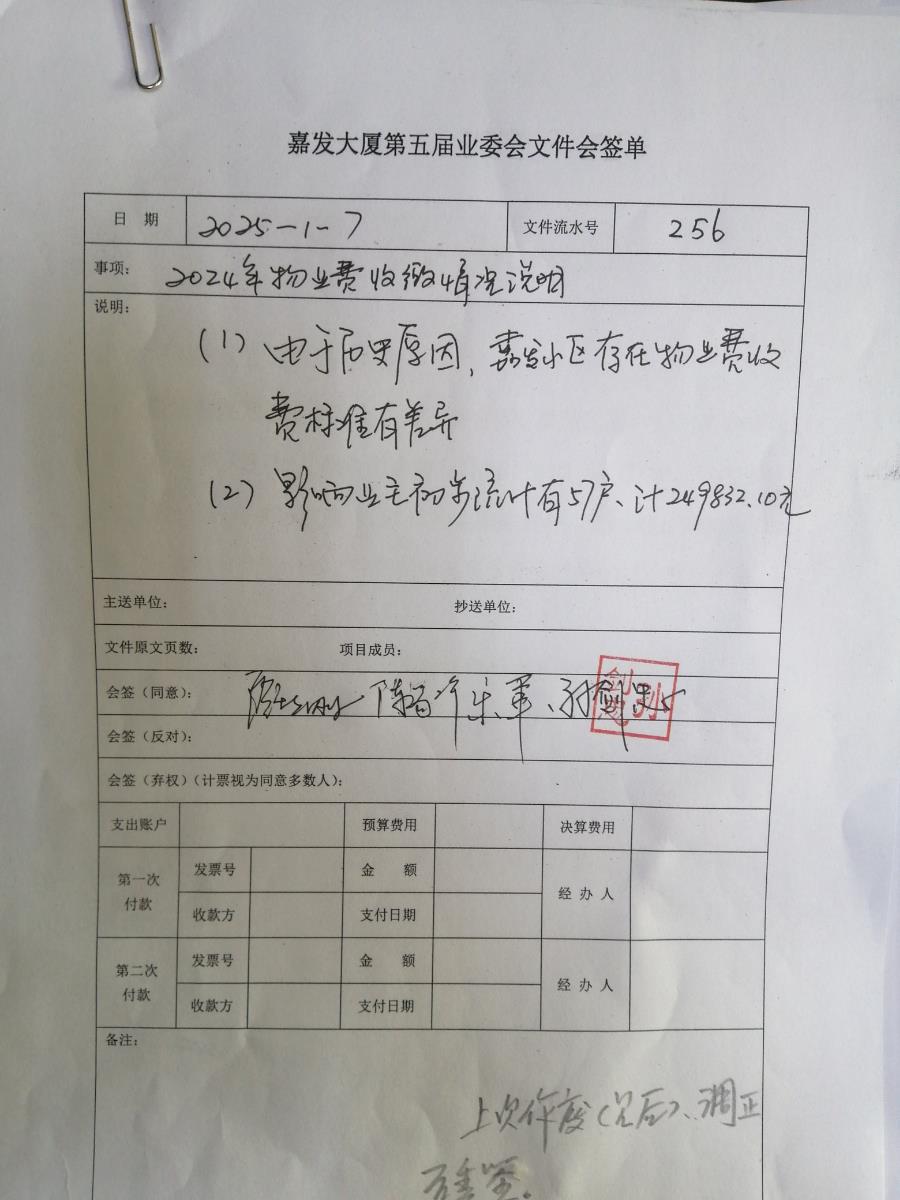 嘉发大厦第五届业委会文件会签单
日 期 2025-1-7 文件流水号 256
事项: 2024年物业费收缴情况说明
说明:
(1) 由于历史原因,嘉发小区存在物业费收
费标准有差异
(2) 影响业主初步统计有57户、计249832.10元
主送单位: 抄送单位:
文件原文页数: 项目成员:
会签(同意):
会签(反对):
会签(弃权)(计票视为同意多数人):
支出账户 预算费用 决算费用
第一次付款 发票号 金 额 经 办 人
收款方 支付日期
第二次付款 发票号 金 额 经 办 人
收款方 支付日期
备注:
上次作废(见后)、调正
重签.